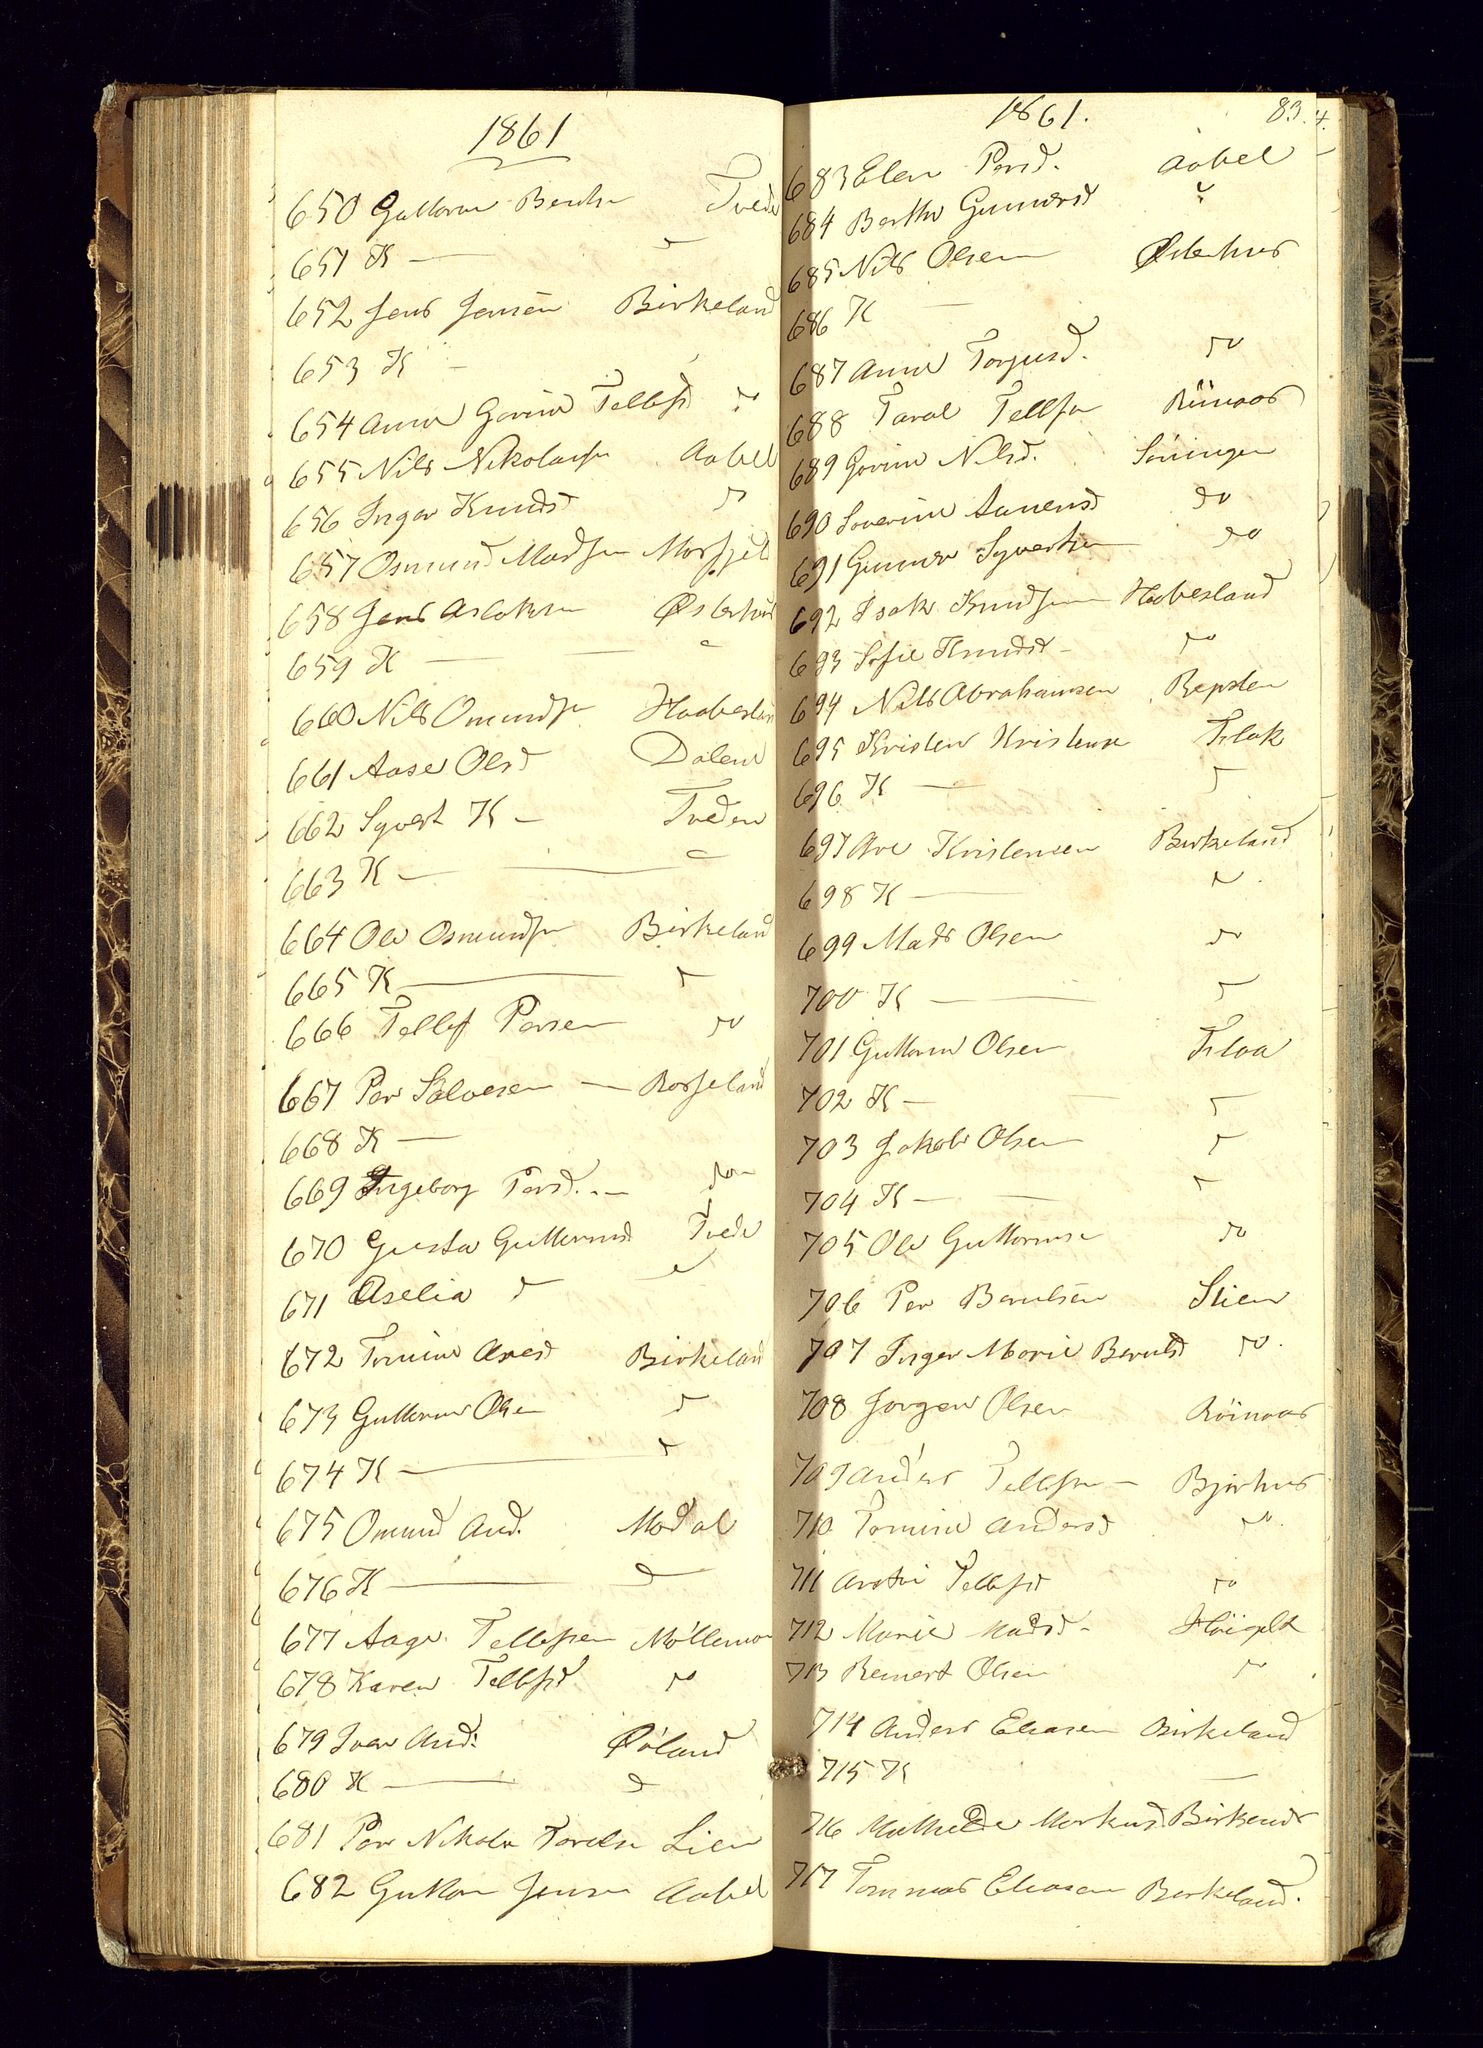 1861
650 Guttorm Bentsn Tvede
651 K — "
652 Jens Jensen Birkeland
653 K -
654 Anne Gorine Tellefsd do
655 Nils Nikolaisn Aabel
656 Inger Knudsd do
657 Osmund Madsen
658 Jens Aslaksn Østerhus
659 K — — "
660 Nils Omundsn Haabesland
661 Aase Olsd Dalene
662 Syvert K - Tveden
663 K — "
664 Ole Osmundsn Birkeland
665 K — "
666 Tellef Persen do
667 Per Salvesen — Rosseland
668 K —
669 Ingeborg Persd. — do
670 Gusta Guttormsd Tvede
671 Aselia d "
672 Tomine Aresd Birkeland
673 Guttorm Olsen "
674 K — "
675 Omund And. Modal
676 K — "
677 Aage Tellefsen Møllemoe
678 Karen Tellefsd do
679 Iver And: Øiland
680 K — "
681 Per Nikolai Tarelsn Lien
682 Guttorm Jensn Aabel
1861. 83.
683 Elen Persd. Aabel
684 Berthe Gunnersd "
685 Nils Olsen Østerhus
686 K —
687 Anne Torjusd. do
688 Taral Tellfsn Rönaas
689 Gorine Nilsd. Söningen
690 Severine Aanensd do
691 Gunner Syvertsen do
692 Isak Knudsen Haabesland
693 Sofie Knudsd - do
694 Nils Abrahamsen Repsten
695 Kristen Kristense Flak
696 K — "
697 Are Kristensen Birkeland
698 K — ".
699 Mads Olsen do
700 K — "
701 Guttorm Olsen Flaa
702 K — "
703 Jakob Olsen "
704 K — "
705 Ole Guttormsn do
706 Per Berulsen Stien
707 Inger Marie Berulsd do.
708 Jørgen Olsen Rönaas
709 Anders Tellefsn — Bjørhus
710 Tomine Andersd ".
711 Tellefsd do
712 Marie Madsd -
713 Reinert Olsen do
714 Anders Eliasen Birkeland
715 K —
716 Mathilde Markusd Birkenes
717 Tommas Eliasen Birkeland.